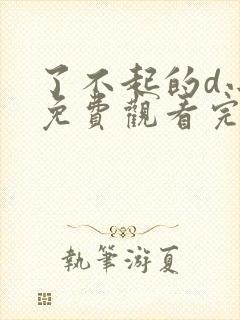 了不起的d.
免費觀看完
執筆游夏